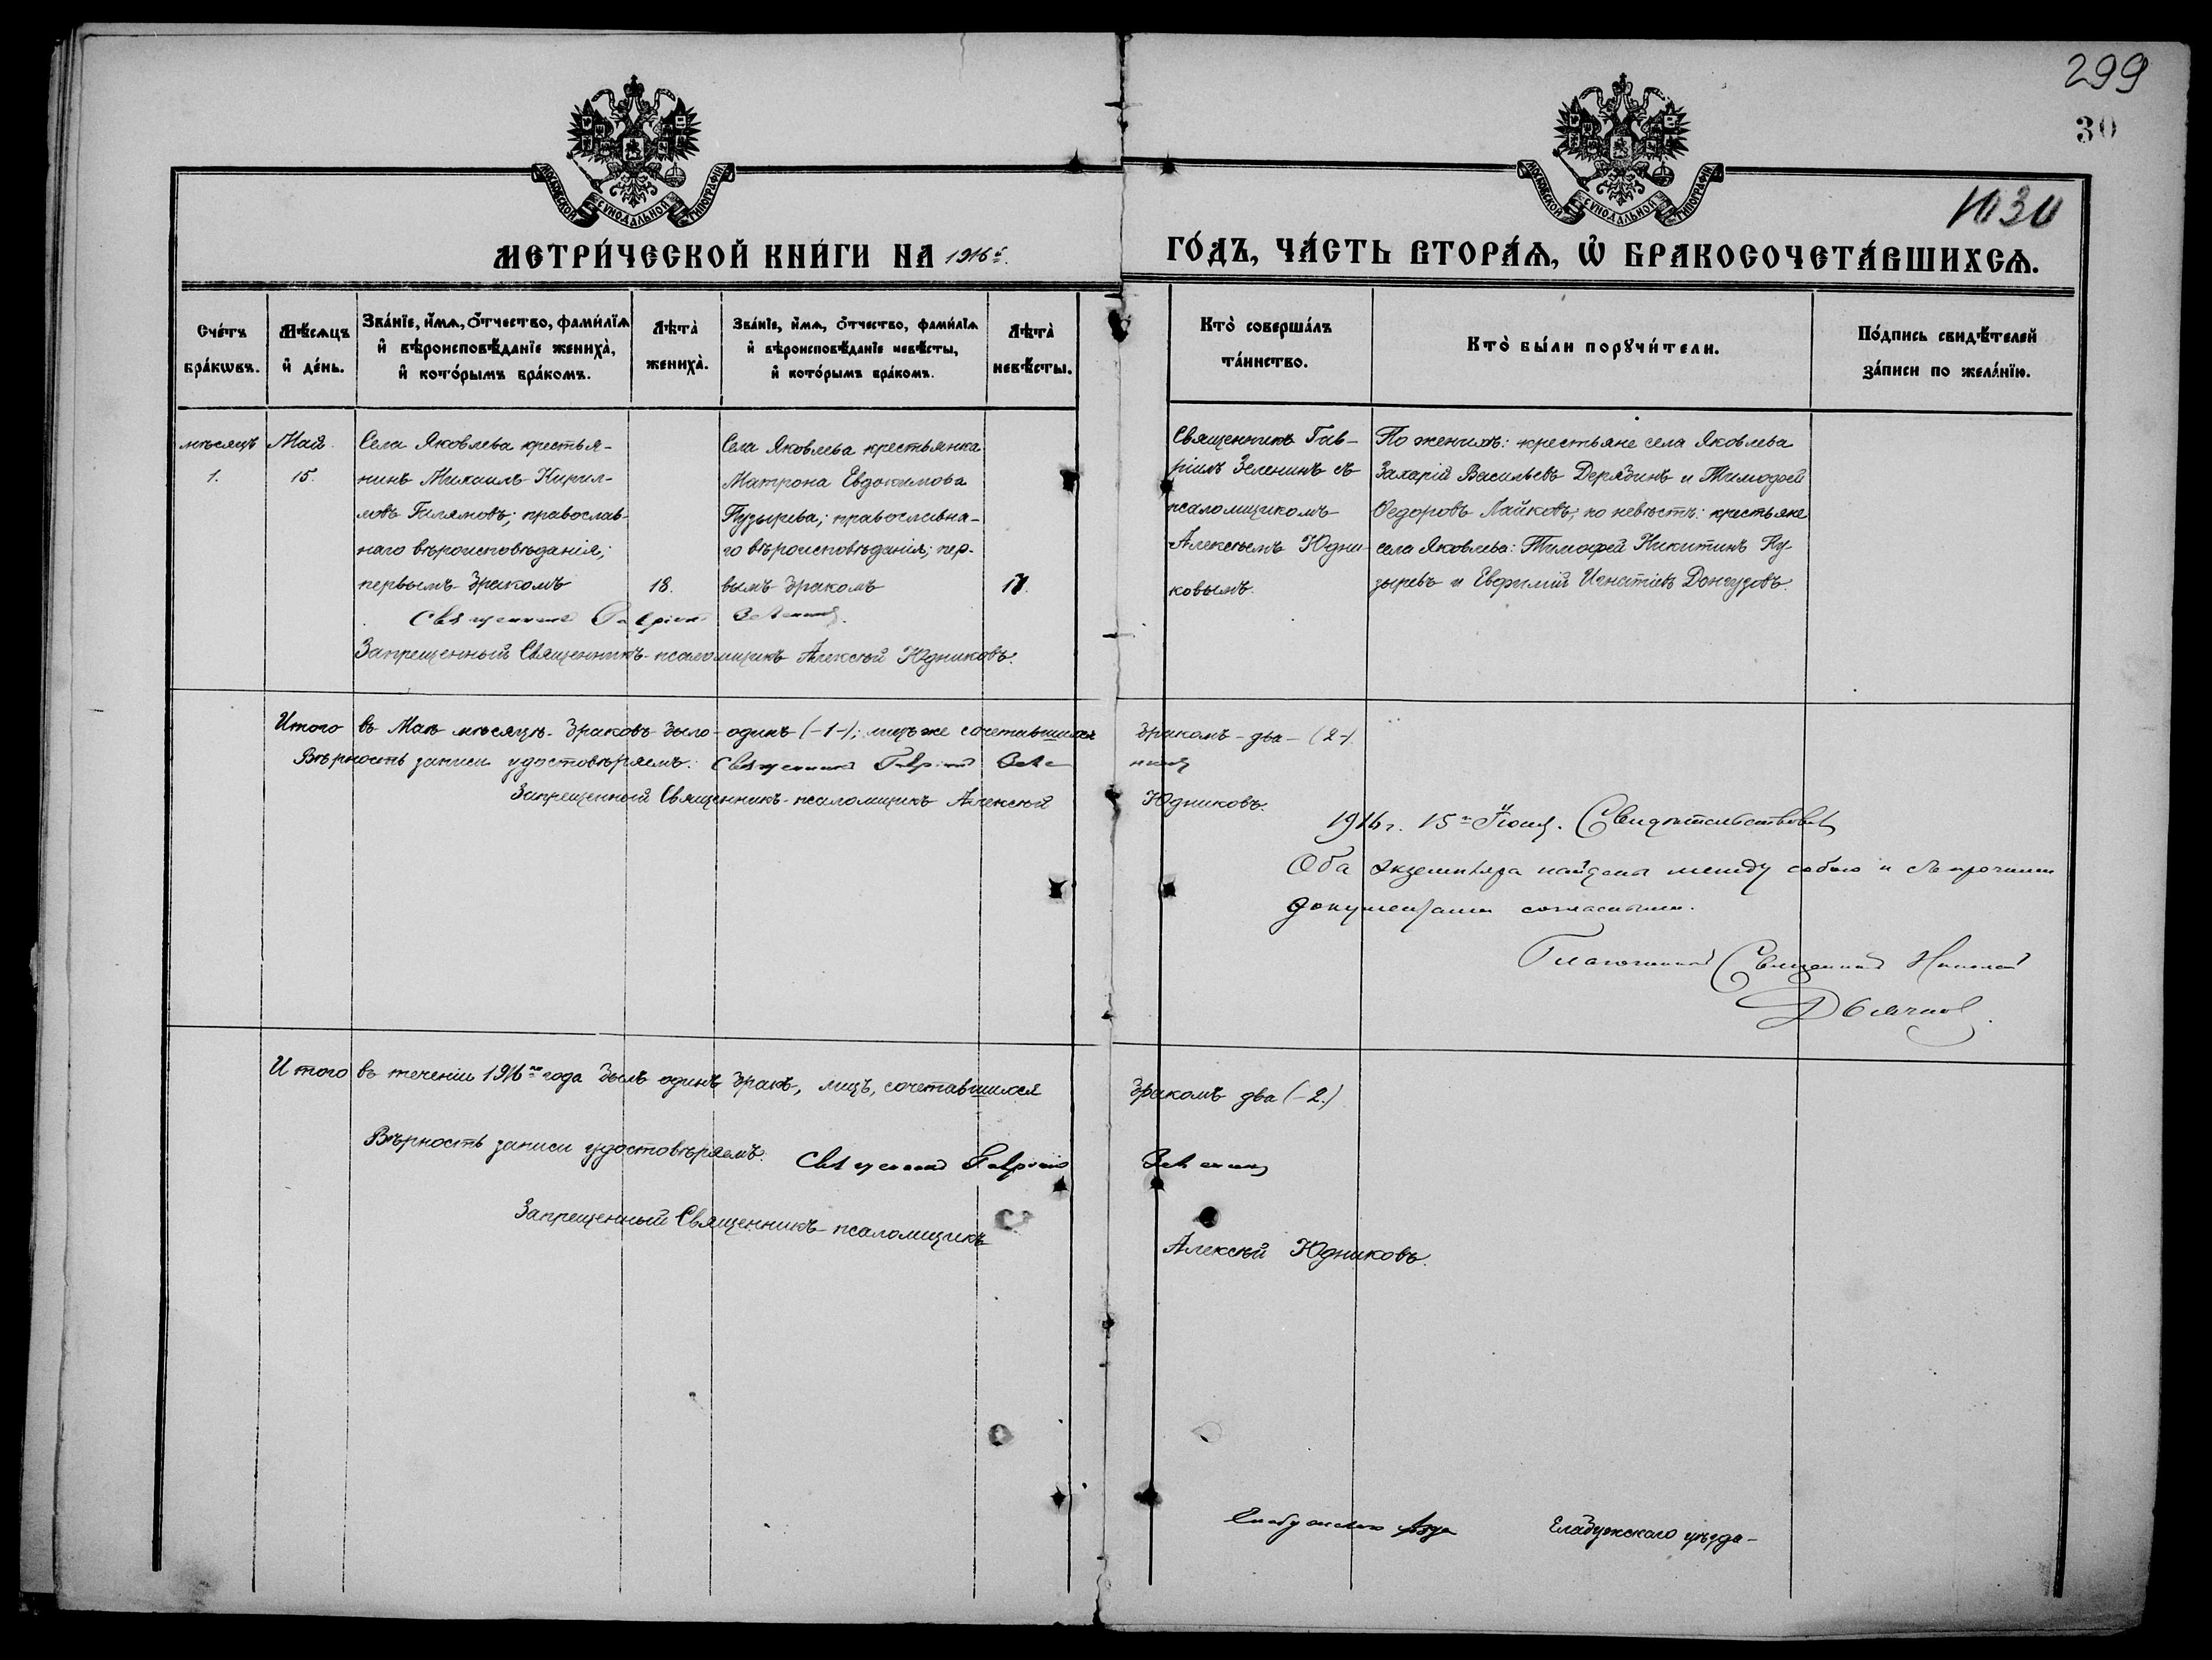 299
30
1030
МОСКОВСКОЙ СѴНОДАЛЬНОЙ ТИПОГРАФІИ
МОСКОВСКОЙ СѴНОДАЛЬНОЙ ТИПОГРАФІИ
МЕТРИ́ЧЕСКОЙ КНИ́ГИ НА 1916 г. ГО́ДЪ, ЧА́СТЬ ВТОРА́Ѧ, Ѡ БРАКОСОЧЕТА́ВШИХСѦ.
Сче́тъ бра́кѡвъ.
Мѣ́сѧцъ и́ де́нь.
Зва́нїе, и́мѧ, о́тчество, фами́лїѧ
и́ вѣроисповѣ́данїе жениха̀,
и́ кото́рымъ бра́комъ.
Лѣта̀ жениха̀.
Зва́нїе, и́мѧ, о́тчество, фами́лїѧ
и́ вѣроисповѣ́данїе невѣ́сты,
и́ кото́рымъ бра́комъ.
Лѣта̀ невѣ́сты.
Кто̀ соверша́лъ та́инство.
Кто̀ бы́ли порꙋчи́тели.
По́дпись свидѣ́телей
за́писи по жела́нїю.
мѣсяцъ Май.
1. 15.
Села Яковлева крестья-
нинъ Михаилъ Кирил-
ловъ Галямовъ; православ-
наго вѣроисповѣданія;
первымъ бракомъ
18.
Села Яковлева крестьянка
Матрона Евдокимова
Пузырева; православна-
го вѣроисповѣданія; пер-
вымъ бракомъ
17.
Священникъ Гав-
ріилъ Зеленинъ съ
псаломщикомъ
Алексѣемъ Юдни-
ковымъ.
По женихѣ: крестьяне села Яковлева
Захарій Васильевъ Дерябинъ и Тимофей
Ѳедоровъ Лайковъ; по невѣстѣ: крестьяне
села Яковлева: Тимофей Никитинъ Пу-
зыревъ и Евфимій Игнатіевъ Донгузовъ.
Священникъ Гавріилъ Зеленинъ.
Запрещенный Священникъ-псаломщикъ Алексѣй Юдниковъ.
Итого въ Маѣ мѣсяцѣ браковъ было одинъ (-1-); лицъ же сочетавшихся бракомъ - два - (2-).
Вѣрность записи удостовѣряемъ: Священникъ Гавріилъ Зеленинъ
Запрещенный Священникъ-псаломщикъ Алексѣй Юдниковъ.
1916 г. 15го Іюня. Свидѣтельствовалъ
Оба экземпляра найдены между собою и съ прочими
документами согласными.
Благочинный Священникъ Николай
Дьячков.
Итого въ теченіи 1916го года былъ одинъ бракъ, лицъ, сочетавшихся бракомъ два (-2.)
Вѣрность записи удостовѣряемъ. Священникъ Гавріилъ Зеленинъ
Запрещенный Священникъ-псаломщикъ Алексѣй Юдниковъ.
Елабужскаго уѣзда Елабужскаго уѣзда-